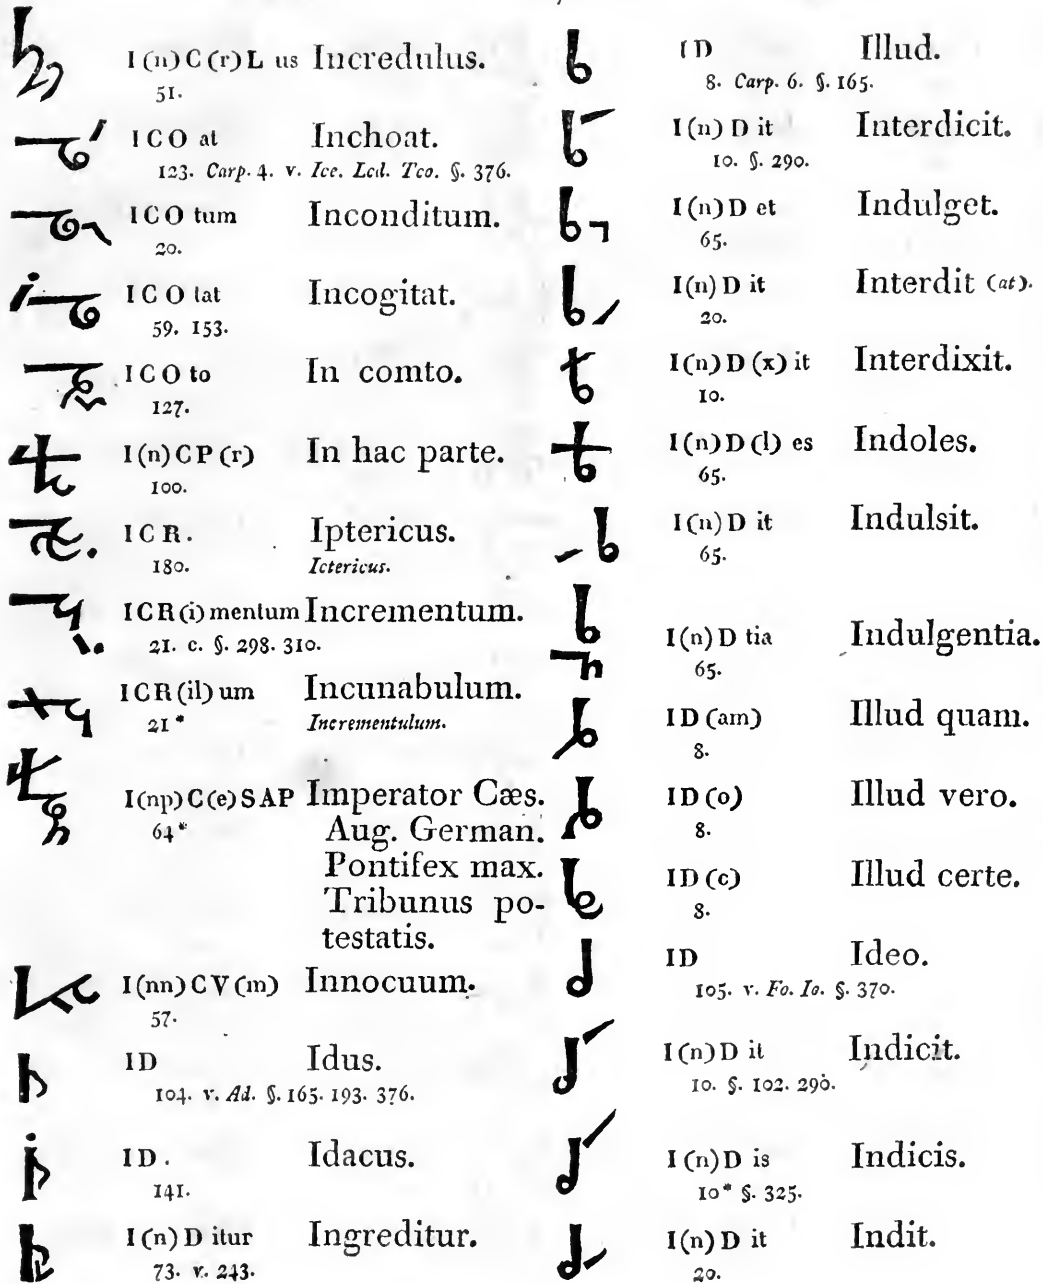 I(n)C(r)L us Incredulus.
51.
ICO at Inchoat.
123. Carp. 4. v. Ice. Lcd. Tco. §. 376.
ICO tum Inconditum.
20.
ICO tat Incogitat.
59. 153.
ICO to In comto.
127.
I(n)CP(r) In hac parte.
100.
ICR. Iptericus.
180. Ictericus.
ICR(i)mentum Incrementum.
21. c. §. 298. 310.
ICR(il)um Incunabulum.
21* Incrementulum.
I(np)C(e)SAP Imperator Cæs.
64* Aug. German.
Pontifex max.
Tribunus po-
testatis.
I(nn)CV(m) Innocuum.
57.
ID Idus.
104. v. Ad. §. 165. 193. 376.
ID. Idacus.
141.
I(n)D itur Ingreditur.
73. v. 243.
ID Illud.
8. Carp. 6. §. 165.
I(n)D it Interdicit.
10. §. 290.
I(n)D et Indulget.
65.
I(n)D it Interdit (at).
20.
I(n)D(x) it Interdixit.
10.
I(n)D(l) es Indoles.
65.
I(n)D it Indulsit.
65.
I(n)D tia Indulgentia.
65.
ID(am) Illud quam.
8.
ID(o) Illud vero.
8.
ID(c) Illud certe.
8.
ID Ideo.
105. v. Fo. Io. §. 370.
I(n)D it Indicit.
10. §. 102. 290.
I(n)D is Indicis.
10* §. 325.
I(n)D it Indit.
20.